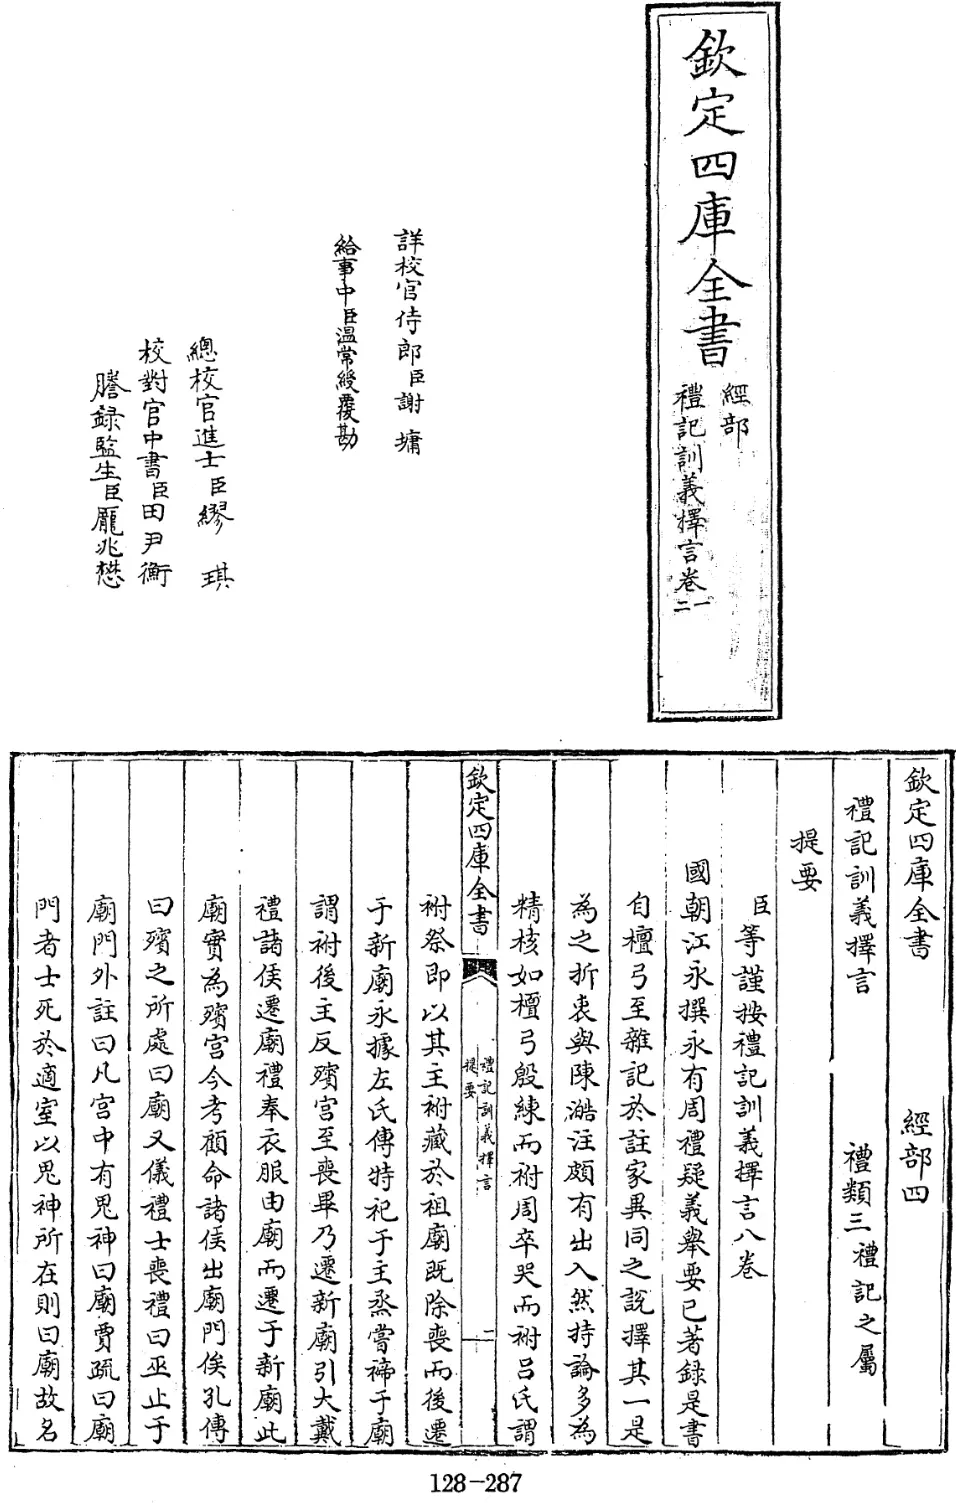 欽定四庫全書
經部
禮記訓義擇言卷一
二
詳校官侍郎臣謝墉
給事中臣溫常綬覆勘
總校官進士臣繆琪
校對官中書臣田尹衡
謄錄監生臣龎兆懋
欽定四庫全書 經部四
禮記訓義擇言 禮類三禮記之屬
提要
臣等謹按禮記訓義擇言八卷
國朝江永撰永有周禮疑義舉要已著録是書
自檀弓至雜記於註家異同之說擇其一是
為之折衷與陳澔注頗有出入然持論多為
精核如檀弓殷練而祔周卒哭而祔呂氏謂
欽定四庫全書
禮記訓義擇言
提要
二
祔祭即以其主祔藏於祖廟既除喪而後遷
于新廟永據左氏傳特祀于主烝嘗禘于廟
謂祔後主反殯宮至喪畢乃遷新廟引大戴
禮諸侯遷廟禮奉衣服由廟而遷于新廟此
廟實為殯宮今考顧命諸侯出廟門俟孔傳
曰殯之所處曰廟又儀禮士喪禮曰巫止于
廟門外註曰凡宮中有鬼神曰廟賈疏曰廟
門者士死於適室以鬼神所在則曰廟故名
128-287